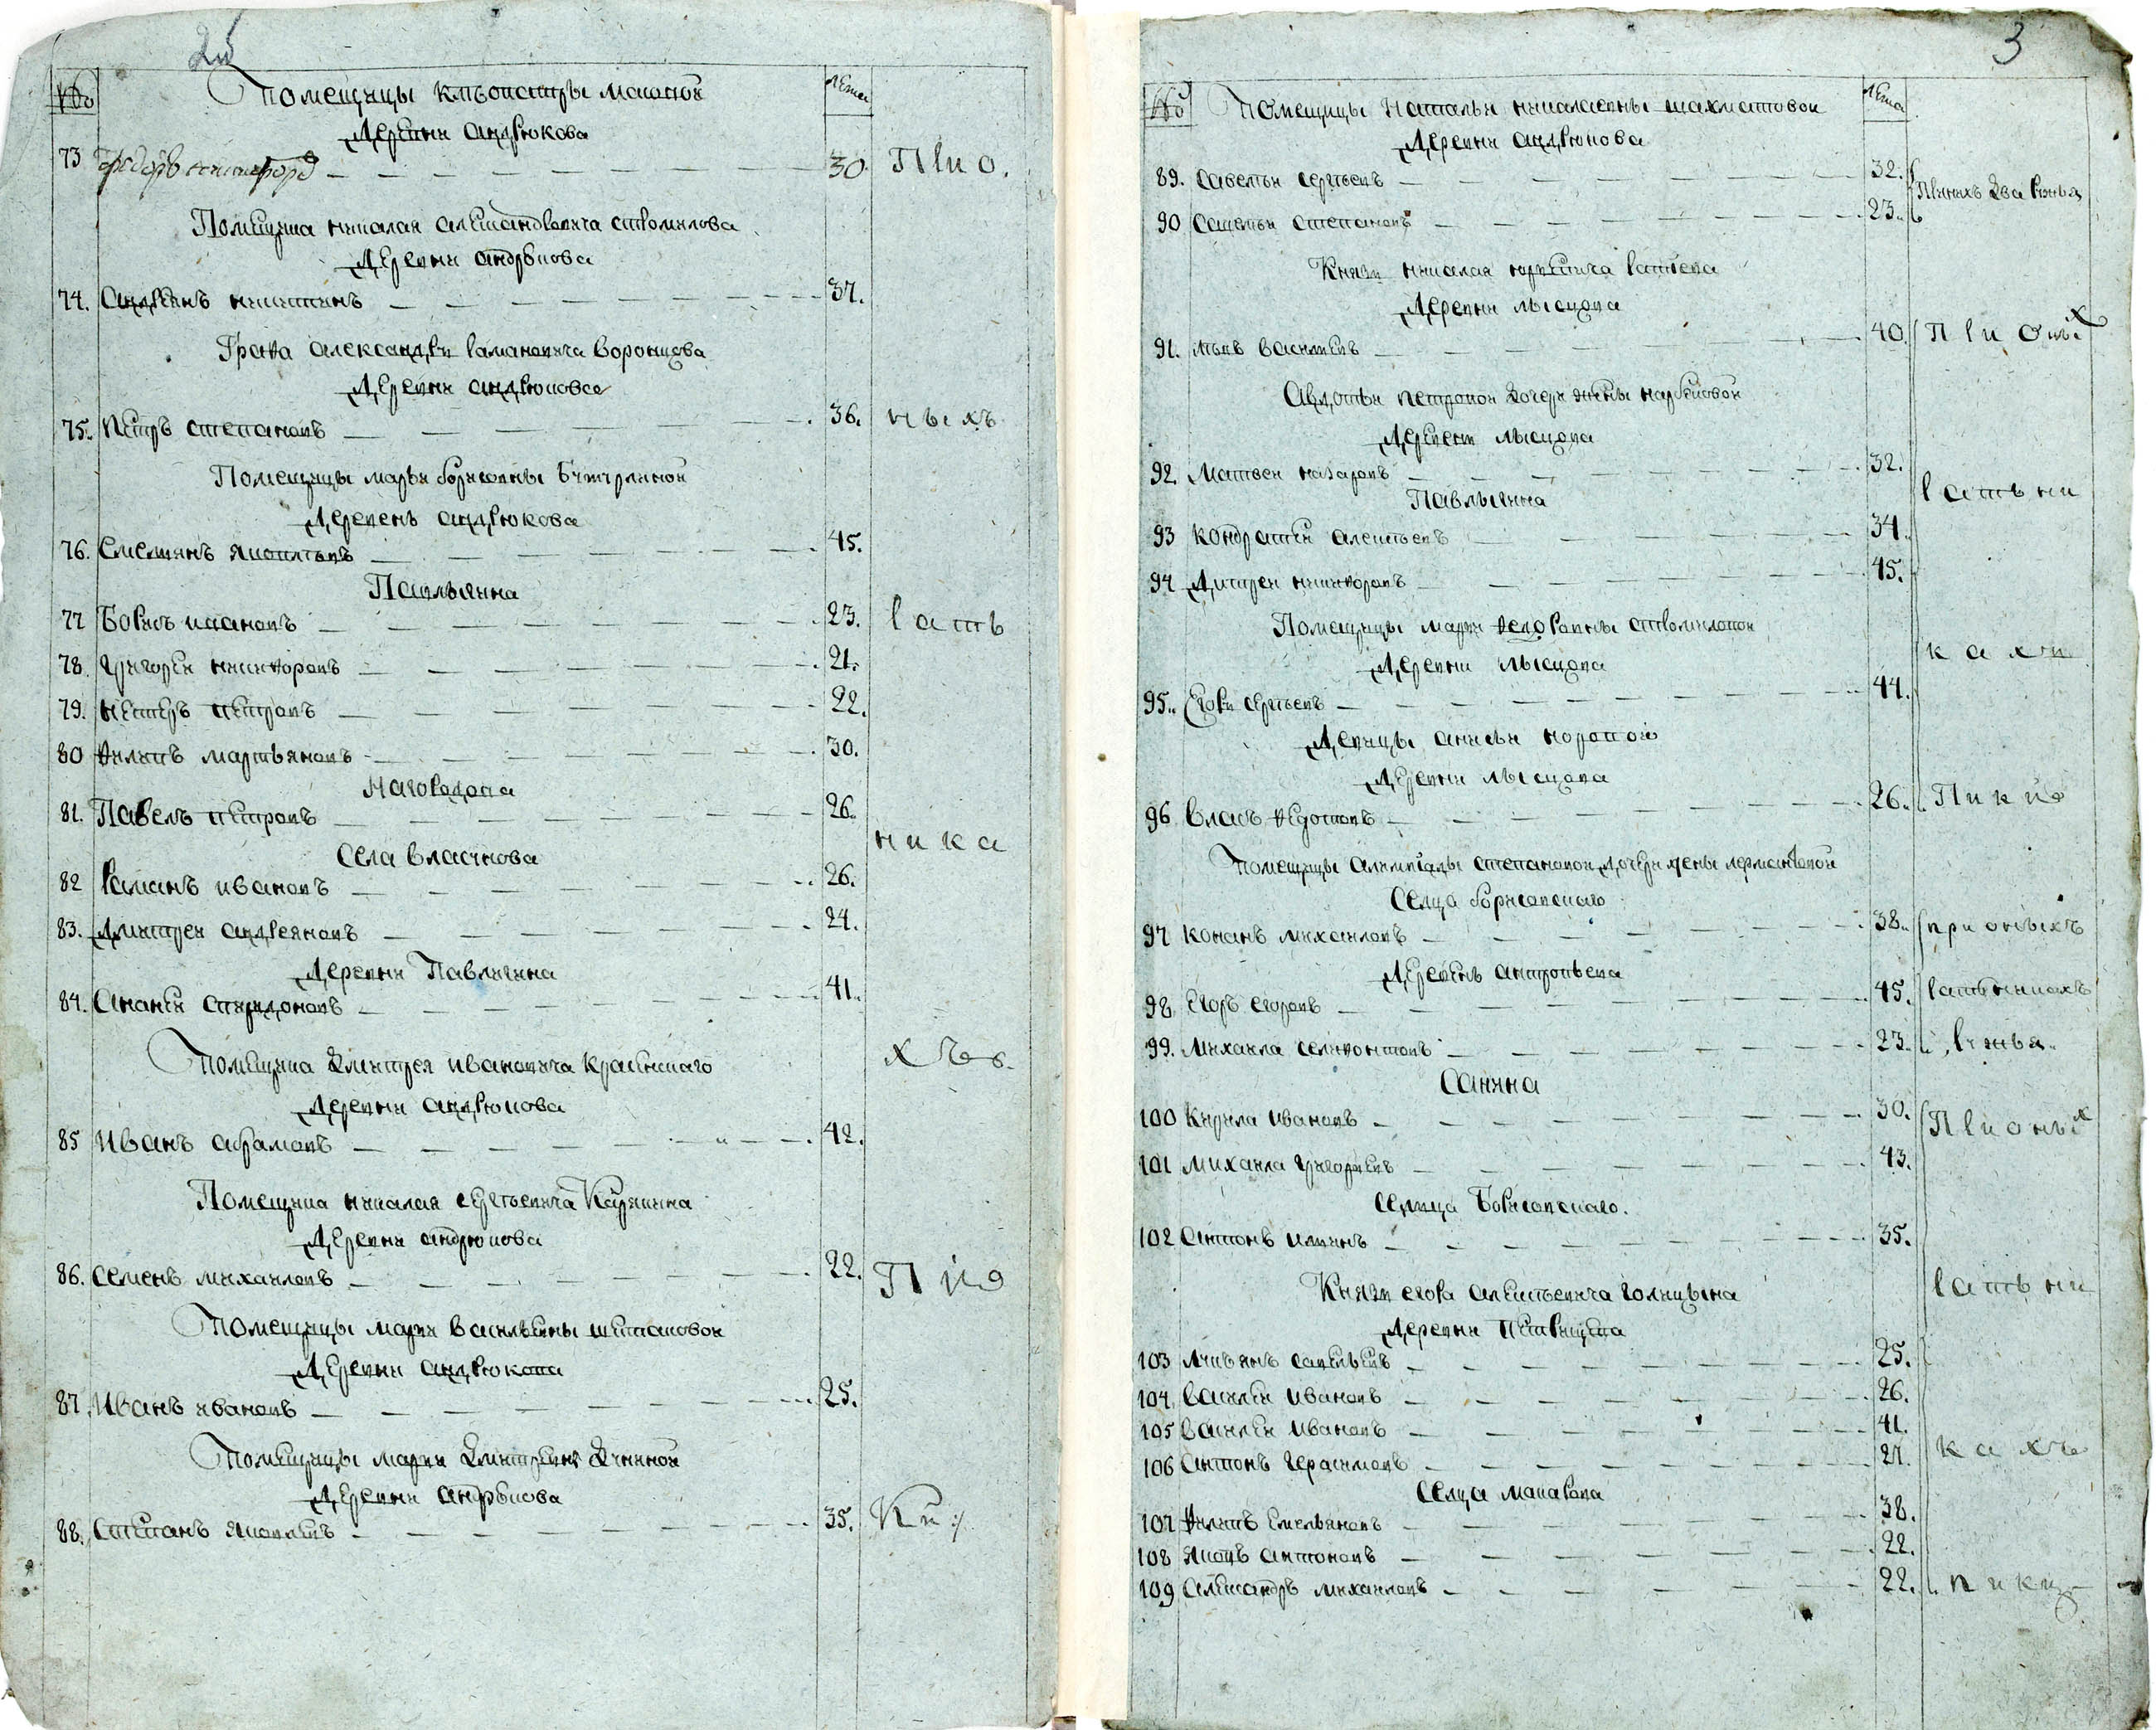 2об
№ Помещицы Клеопатры
Лета
Деревни андрюкова
73 Федоръ никифоровъ 30. При о
Помещика николая александровича стромилова
Деревни андрюкова
74. Андреянъ никитинъ 37.
Графа александра романовича воронцова
Деревни андрюкова
75. Петръ степановъ 36. ныхъ
Помещицы марьи борисовны Бутурлиной
Деревень андрюкова
76. Емельянъ яковлевъ 45.
Павлыгина
77 Борисъ ивановъ 23. рать
78. Григорей никифоровъ 21.
79. петръ петровъ 22.
80 Филипъ мартьяновъ 30.
81. Павелъ петровъ 26.
Села власкова
ника
82 Романъ ивановъ 26.
83. Дмитрей андреяновъ 24.
Деревни Павлыгина
84. Ананей спиридоновъ 41.
хъ
Помещика Дмитрея ивановича
Деревни андрюкова
85 Иванъ абрамовъ 42.
Помещика николая сергеевича Карякина
Деревни андрюкова
86. Семенъ михаиловъ 22. Пи
Помещицы марьи васильевны шиповой
Деревни андрюкова
87. Иванъ ивановъ 25.
Помещицы марьи Дмитревны
Деревни андрюкова
88. Степанъ яковлевъ 35. Ки:/
3
№ Помещицы Натальи николаевны шахматовой
Лета
Деревни андрюкова
89. Савелъи сергеевъ 32. При нихъ Два
90 Савелъи степановъ 23.
Князя николая юрьевича
Деревни лысцова
91. василевъ 40. При оныхъ
Авдотьи петровой дочери жены
Деревни лысцова
92. Матвеи назаровъ 32.
Павлыгина
ратьни
93 Кондратеи алексеевъ 34.
94 Дмитреи никифоровъ 45.
Помещицы марьи Федоровны стромиловой
Деревни лысцова
кахъ
95. Егоръ сергеевъ 44.
Девицы анисьи
Деревни лысцова
96 Власъ Федотовъ 26. Пики
Помещицы алимпиады степановой дочери жены
Селца борисовскаго
97 Кононъ михаиловъ 38. при оныхъ
Деревень антропьева
98. Егоръ егоровъ 45. ратьникахъ
99. Михаила селифонтовъ 23.
Санина
100 Кирила Ивановъ 30. При оныхъ
101 Михаила Григорьевъ 43.
Селца Борисовскаго.
102 Антонъ илинъ 35.
Князя егора алексеевича голицына
ратьни
Деревни
103 Лукьянъ савельевъ 25.
104. Василеи Ивановъ 26.
105 Василеи Ивановъ 41.
106 Антонъ Герасимовъ 27. кахъ
Селца макарова
107 Филипъ Емельяновъ 38.
108 Яковъ антоновъ 22.
109 Александръ михаиловъ 22. пики